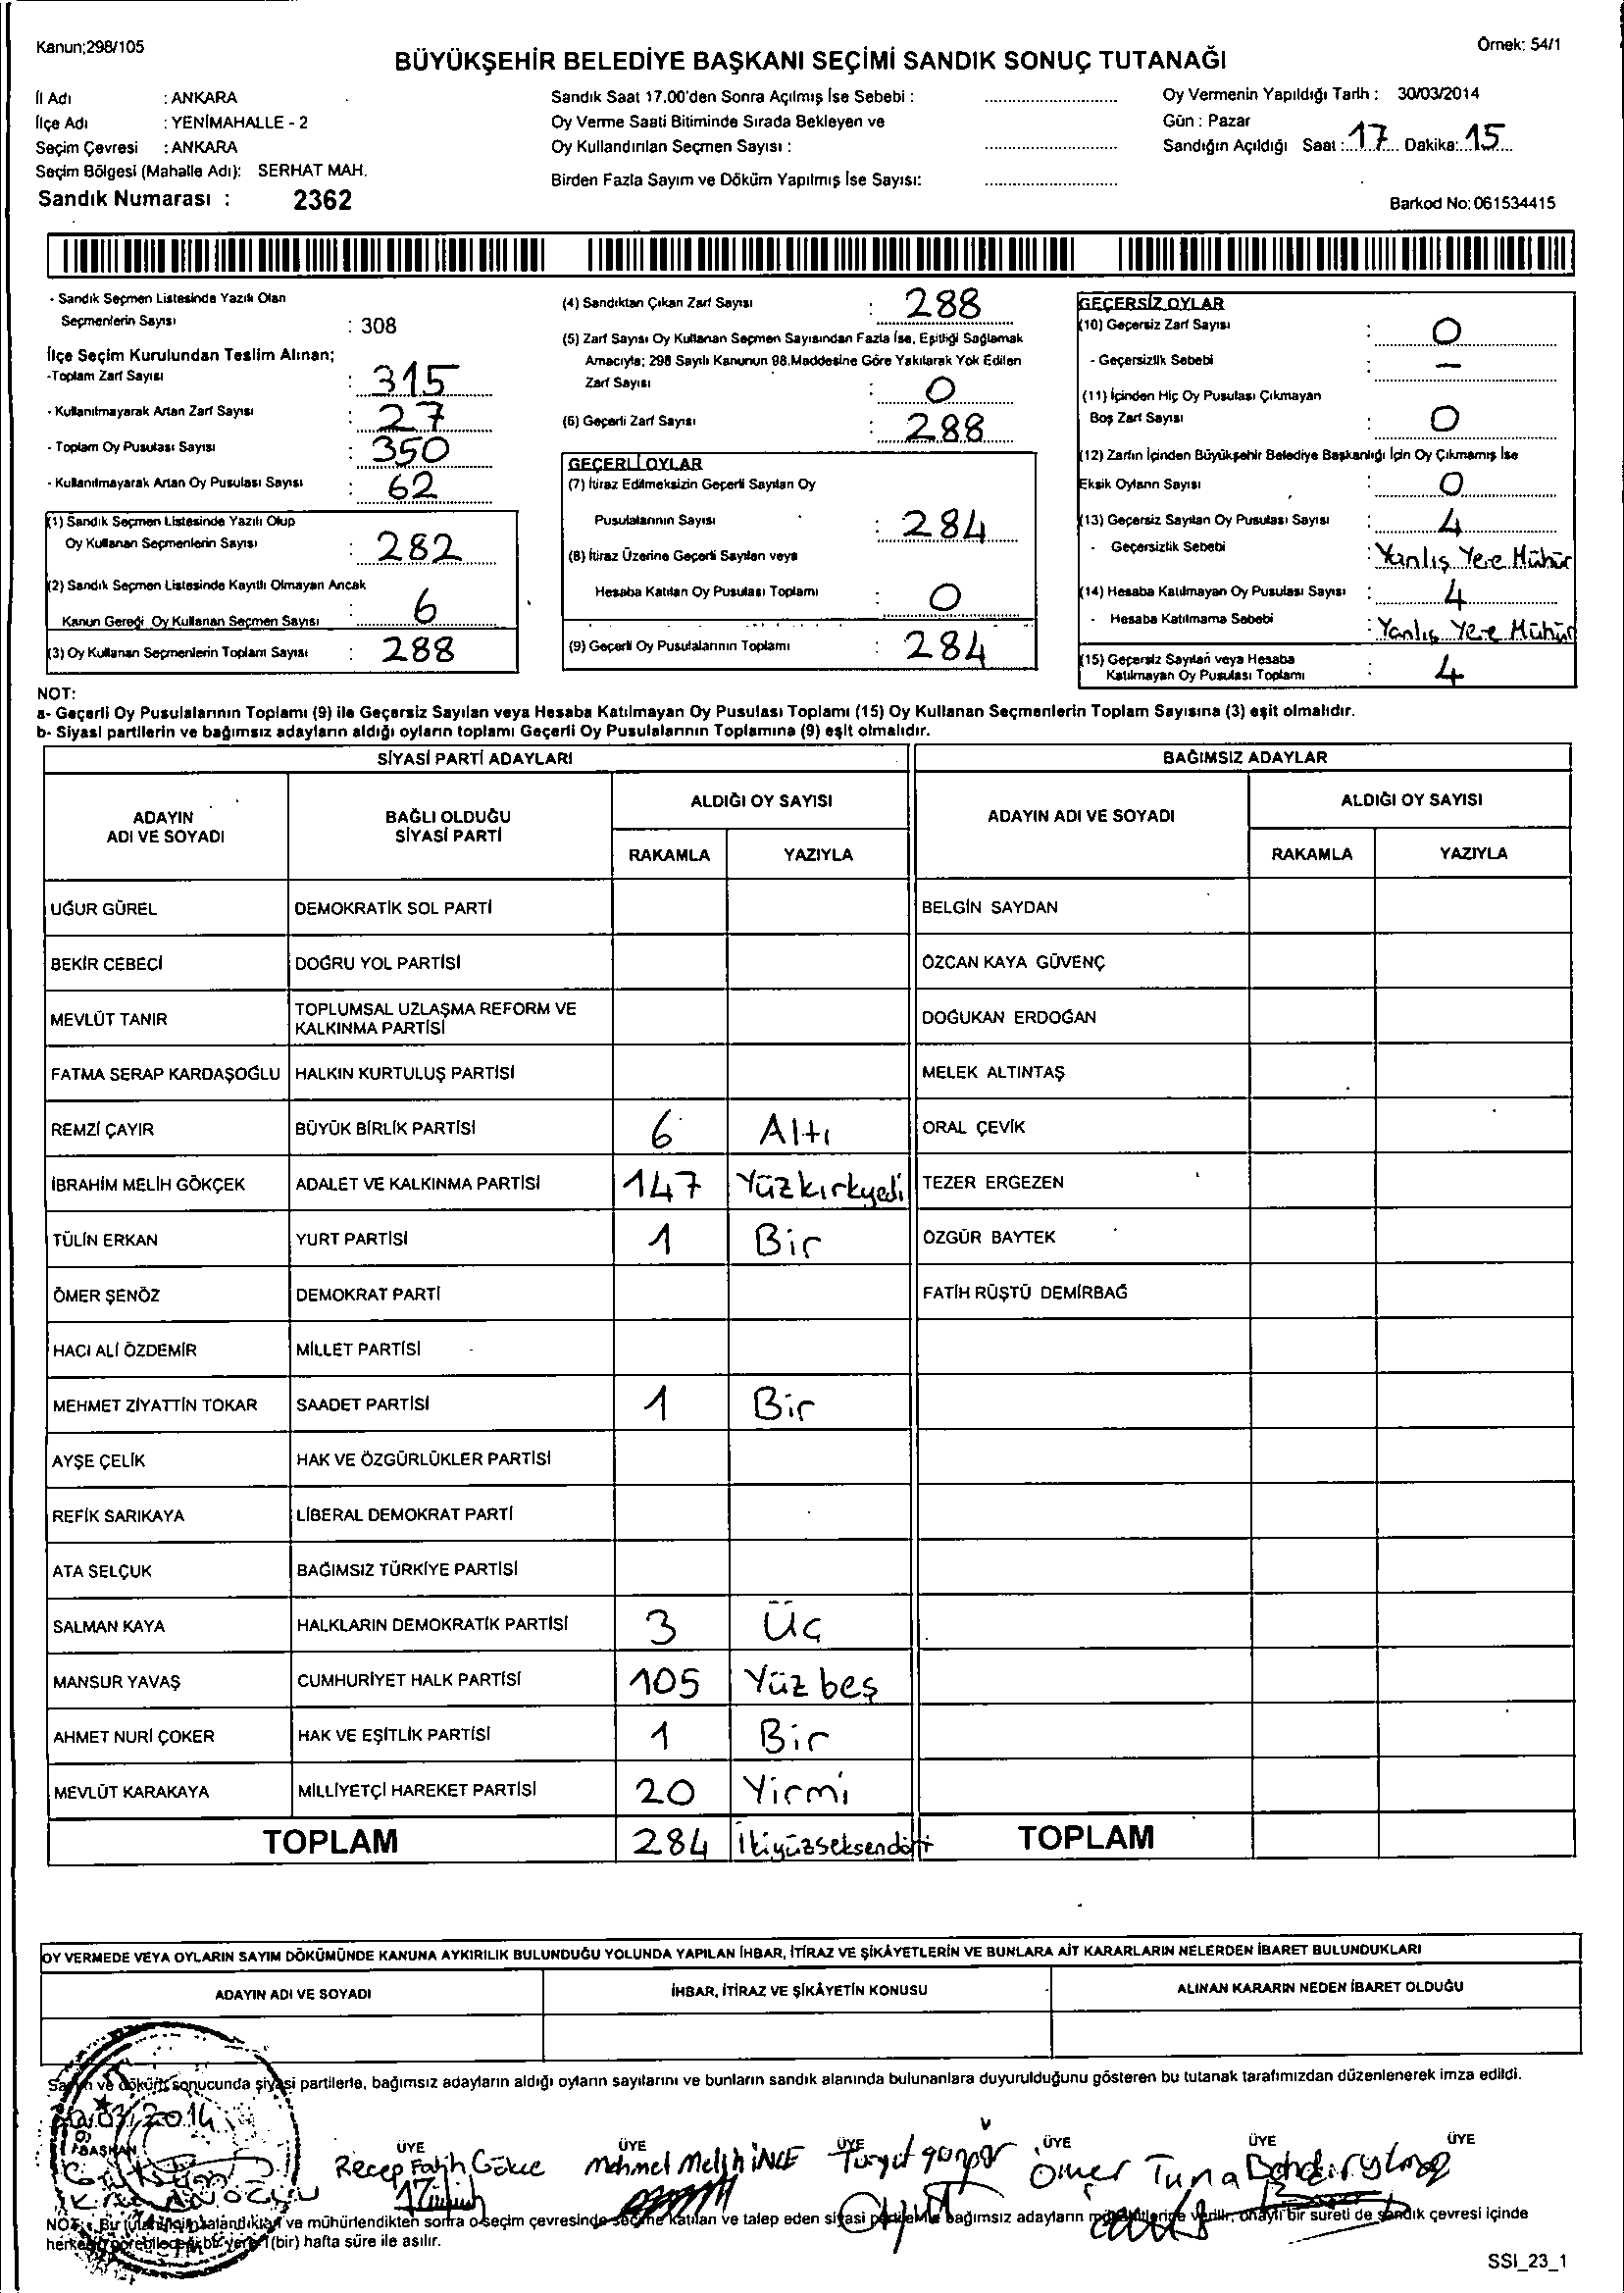 Kanun;298/105
Örnek: 54/1
BÜYÜKŞEHİR BELEDİYE BAŞKANI SEÇİMİ SANDIK SONUÇ TUTANAĞI
İl Adı : ANKARA
İlçe Adı : YENİMAHALLE - 2
Seçim Çevresi : ANKARA
Seçim Bölgesi (Mahalle Adı): SERHAT MAH.
Sandık Numarası : 2362
Sandık Saat 17.00'den Sonra Açılmış İse Sebebi :
Oy Verme Saati Bitiminde Sırada Bekleyen ve
Oy Kullandırılan Seçmen Sayısı :
Birden Fazla Sayım ve Döküm Yapılmış İse Sayısı:
Oy Vermenin Yapıldığı Tarih : 30/03/2014
Gün : Pazar
Sandığın Açıldığı Saat : 17 Dakika: 15
Barkod No: 061534415
- Sandık Seçmen Listesinde Yazılı Olan
Seçmenlerin Sayısı : 308
İlçe Seçim Kurulundan Teslim Alınan;
-Toplam Zarf Sayısı : 315
- Kullanılmayarak Artan Zarf Sayısı : 27
- Toplam Oy Pusulası Sayısı : 350
- Kullanılmayarak Artan Oy Pusulası Sayısı : 62
(1) Sandık Seçmen Listesinde Yazılı Olup
Oy Kullanan Seçmenlerin Sayısı : 282
(2) Sandık Seçmen Listesinde Kayıtlı Olmayan Ancak
Kanun Gereği Oy Kullanan Seçmen Sayısı : 6
(3) Oy Kullanan Seçmenlerin Toplam Sayısı : 288
(4) Sandıktan Çıkan Zarf Sayısı : 288
(5) Zarf Sayısı Oy Kullanan Seçmen Sayısından Fazla İse, Eşitliği Sağlamak
Amacıyla; 298 Sayılı Kanunun 98.Maddesine Göre Yakılarak Yok Edilen
Zarf Sayısı : 0
(6) Geçerli Zarf Sayısı : 288
GEÇERLİ OYLAR
(7) İtiraz Edilmeksizin Geçerli Sayılan Oy
Pusulalarının Sayısı : 284
(8) İtiraz Üzerine Geçerli Sayılan veya
Hesaba Katılan Oy Pusulası Toplamı : 0
(9) Geçerli Oy Pusulalarının Toplamı : 284
GEÇERSİZ OYLAR
(10) Geçersiz Zarf Sayısı : 0
- Geçersizlik Sebebi : —
(11) İçinden Hiç Oy Pusulası Çıkmayan
Boş Zarf Sayısı : 0
(12) Zarfın İçinden Büyükşehir Belediye Başkanlığı İçin Oy Çıkmamış İse
Eksik Oyların Sayısı : 0
(13) Geçersiz Sayılan Oy Pusulası Sayısı : 4
- Geçersizlik Sebebi : Yanlış Yere Mühür
(14) Hesaba Katılmayan Oy Pusulası Sayısı : 4
- Hesaba Katılmama Sebebi : Yanlış Yere Mühür
(15) Geçersiz Sayılan veya Hesaba
Katılmayan Oy Pusulası Toplamı : 4
NOT:
a- Geçerli Oy Pusulalarının Toplamı (9) ile Geçersiz Sayılan veya Hesaba Katılmayan Oy Pusulası Toplamı (15) Oy Kullanan Seçmenlerin Toplam Sayısına (3) eşit olmalıdır.
b- Siyasi partilerin ve bağımsız adayların aldığı oyların toplamı Geçerli Oy Pusulalarının Toplamına (9) eşit olmalıdır.
SİYASİ PARTİ ADAYLARI
BAĞIMSIZ ADAYLAR
ADAYIN ADI VE SOYADI
BAĞLI OLDUĞU SİYASİ PARTİ
ALDIĞI OY SAYISI
RAKAMLA YAZIYLA
ADAYIN ADI VE SOYADI
ALDIĞI OY SAYISI
RAKAMLA YAZIYLA
UĞUR GÜREL DEMOKRATİK SOL PARTİ BELGİN SAYDAN
BEKİR CEBECİ DOĞRU YOL PARTİSİ ÖZCAN KAYA GÜVENÇ
MEVLÜT TANIR TOPLUMSAL UZLAŞMA REFORM VE KALKINMA PARTİSİ DOĞUKAN ERDOĞAN
FATMA SERAP KARDAŞOĞLU HALKIN KURTULUŞ PARTİSİ MELEK ALTINTAŞ
REMZİ ÇAYIR BÜYÜK BİRLİK PARTİSİ 6 Altı ORAL ÇEVİK
İBRAHİM MELİH GÖKÇEK ADALET VE KALKINMA PARTİSİ 147 Yüzkırkyedi TEZER ERGEZEN
TÜLİN ERKAN YURT PARTİSİ 1 Bir ÖZGÜR BAYTEK
ÖMER ŞENÖZ DEMOKRAT PARTİ FATİH RÜŞTÜ DEMİRBAĞ
HACI ALİ ÖZDEMİR MİLLET PARTİSİ
MEHMET ZİYATTİN TOKAR SAADET PARTİSİ 1 Bir
AYŞE ÇELİK HAK VE ÖZGÜRLÜKLER PARTİSİ
REFİK SARIKAYA LİBERAL DEMOKRAT PARTİ
ATA SELÇUK BAĞIMSIZ TÜRKİYE PARTİSİ
SALMAN KAYA HALKLARIN DEMOKRATİK PARTİSİ 3 Üç
MANSUR YAVAŞ CUMHURİYET HALK PARTİSİ 105 Yüz beş
AHMET NURİ ÇOKER HAK VE EŞİTLİK PARTİSİ 1 Bir
MEVLÜT KARAKAYA MİLLİYETÇİ HAREKET PARTİSİ 20 Yirmi
TOPLAM 284 İkiyüzseksendört TOPLAM
OY VERMEDE VEYA OYLARIN SAYIM DÖKÜMÜNDE KANUNA AYKIRILIK BULUNDUĞU YOLUNDA YAPILAN İHBAR, İTİRAZ VE ŞİKÂYETLERİN VE BUNLARA AİT KARARLARIN NELERDEN İBARET BULUNDUKLARI
ADAYIN ADI VE SOYADI İHBAR, İTİRAZ VE ŞİKÂYETİN KONUSU ALINAN KARARIN NEDEN İBARET OLDUĞU
Sayım ve döküm sonucunda siyasi partilerle, bağımsız adayların aldığı oyların sayılarını ve bunların sandık alanında bulunanlara duyurulduğunu gösteren bu tutanak tarafımızdan düzenlenerek imza edildi.
BAŞKAN ÜYE ÜYE ÜYE ÜYE ÜYE ÜYE
Recep Fatih Gökce Mehmet Melih İNCE Turgut güngör Ömer Tuna
NOT: Bu tutanak ve mühürlendikten sonra o seçim çevresinde seçime katılan ve talep eden siyasi partilerle bağımsız adayların müşahitlerine verilir, onaylı bir sureti de sandık çevresi içinde
herkesin görebileceği bir yere 1(bir) hafta süre ile asılır.
SSI_23_1